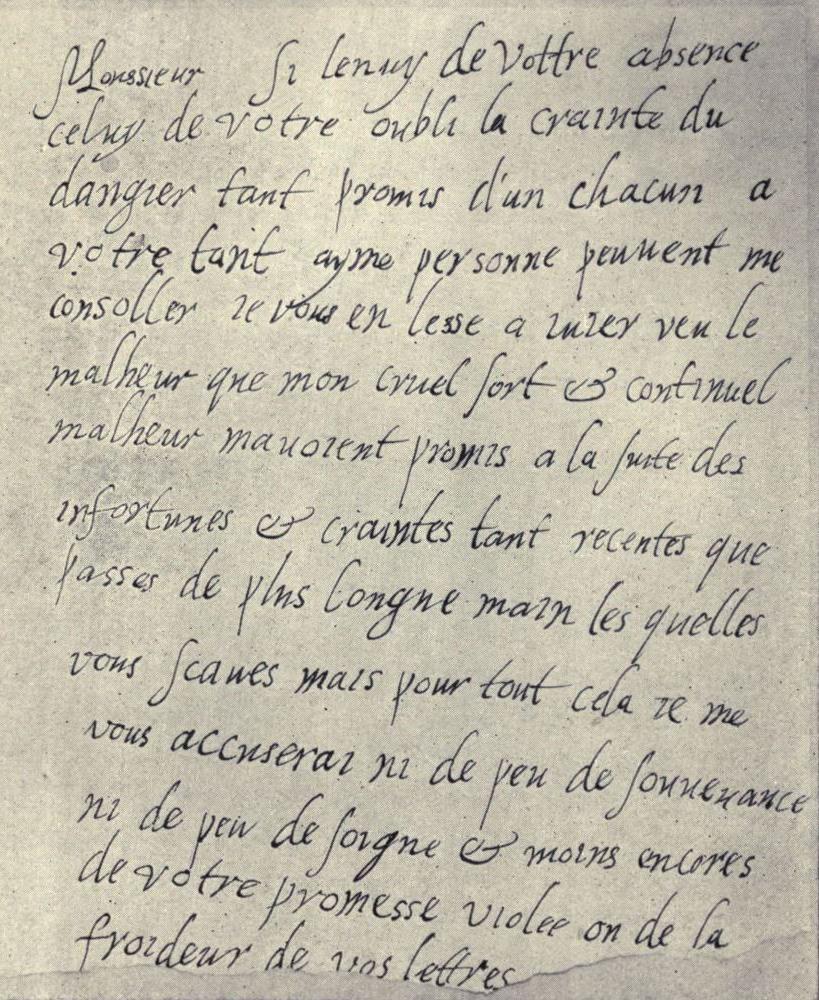 Monssieur Si lenuy de Vottre absence
celuy de votre oubli la crainte du
dangier tant promis d'un chacun a
votre tant ayme personne peuuent me
consoller ie vous en lesse a iuier veu le
malheur que mon cruel sort & continuel
malheur mauoient promis a la suite des
infortunes & craintes tant recentes que
passes de plus longue main les quelles
vous scaues mais pour tout cela ie me
vous accuserai ni de peu de souuenance
ni de peu de soigne & moins encores
de votre promesse violee ou de la
froideur de vos lettres